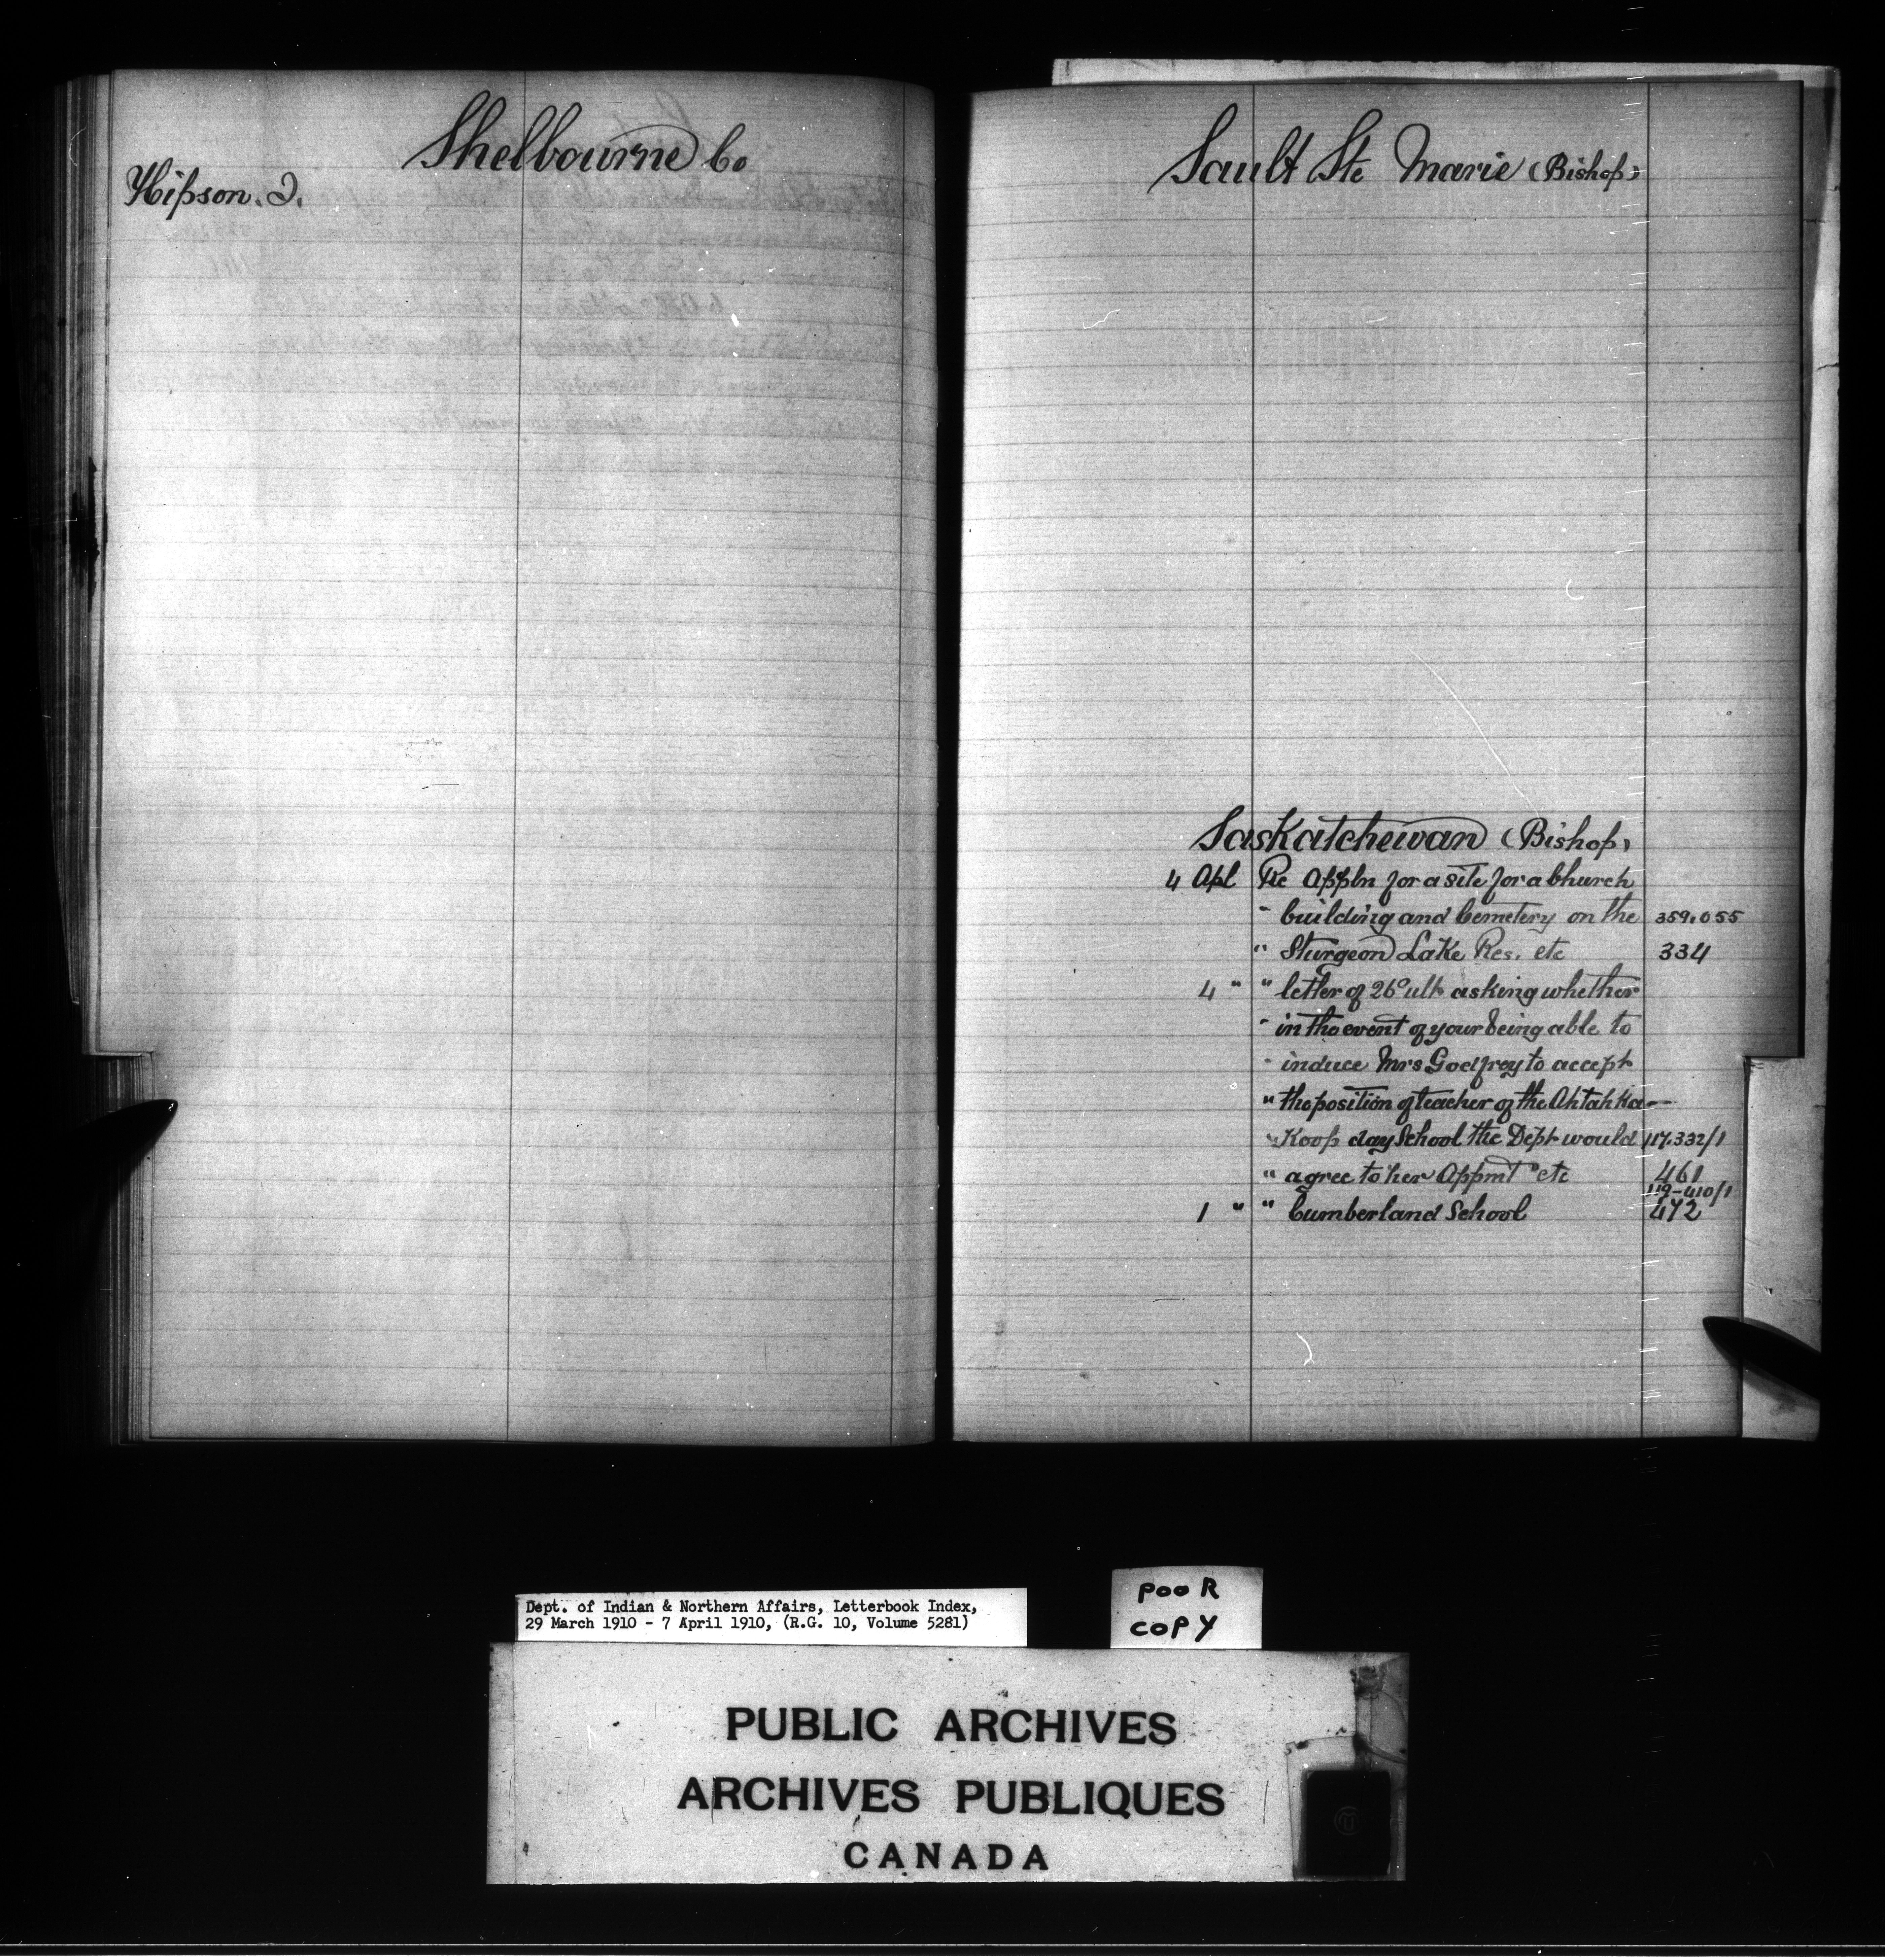 Shelbourne Co
Hipson. J.
Sault Ste Marie (Bishop)
Saskatchewan (Bishop)
4 Apl Re Appln for a site for a Church
" building and Cemetery on the 359.055
" Sturgeon Lake Res. etc 334
4 " " letter of 26° ult asking whether
" in the event of your being able to
" induce Mrs Godfrey to accept
" the position of teacher of the Ahtahka-
" Koop day School the Dept would 117.332/1
" agree to her Appmt etc 461
119-410/1
1 " " Cumberland School 472
Dept. of Indian & Northern Affairs, Letterbook Index,
29 March 1910 - 7 April 1910, (R.G. 10, Volume 5281)
POOR
COPY
PUBLIC ARCHIVES
ARCHIVES PUBLIQUES
CANADA